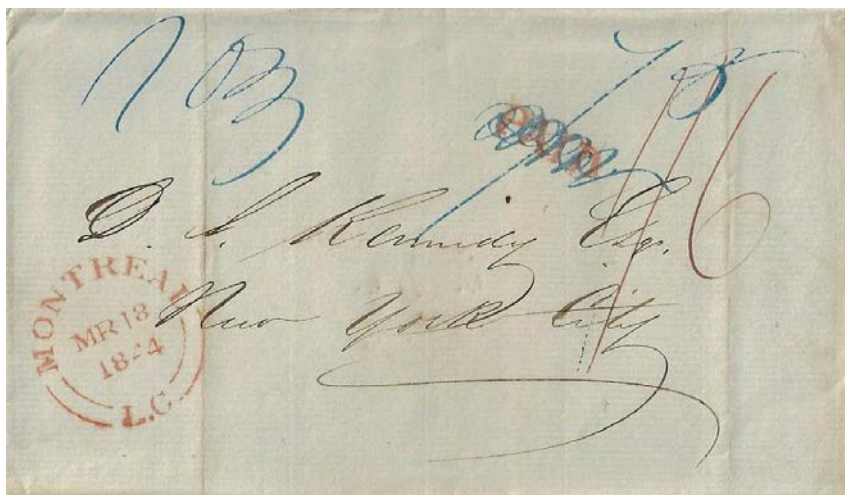 PAID
1/6
D. S. Kennedy Esqr.
New York City
MONTREAL
MR 18
1844
L.C.